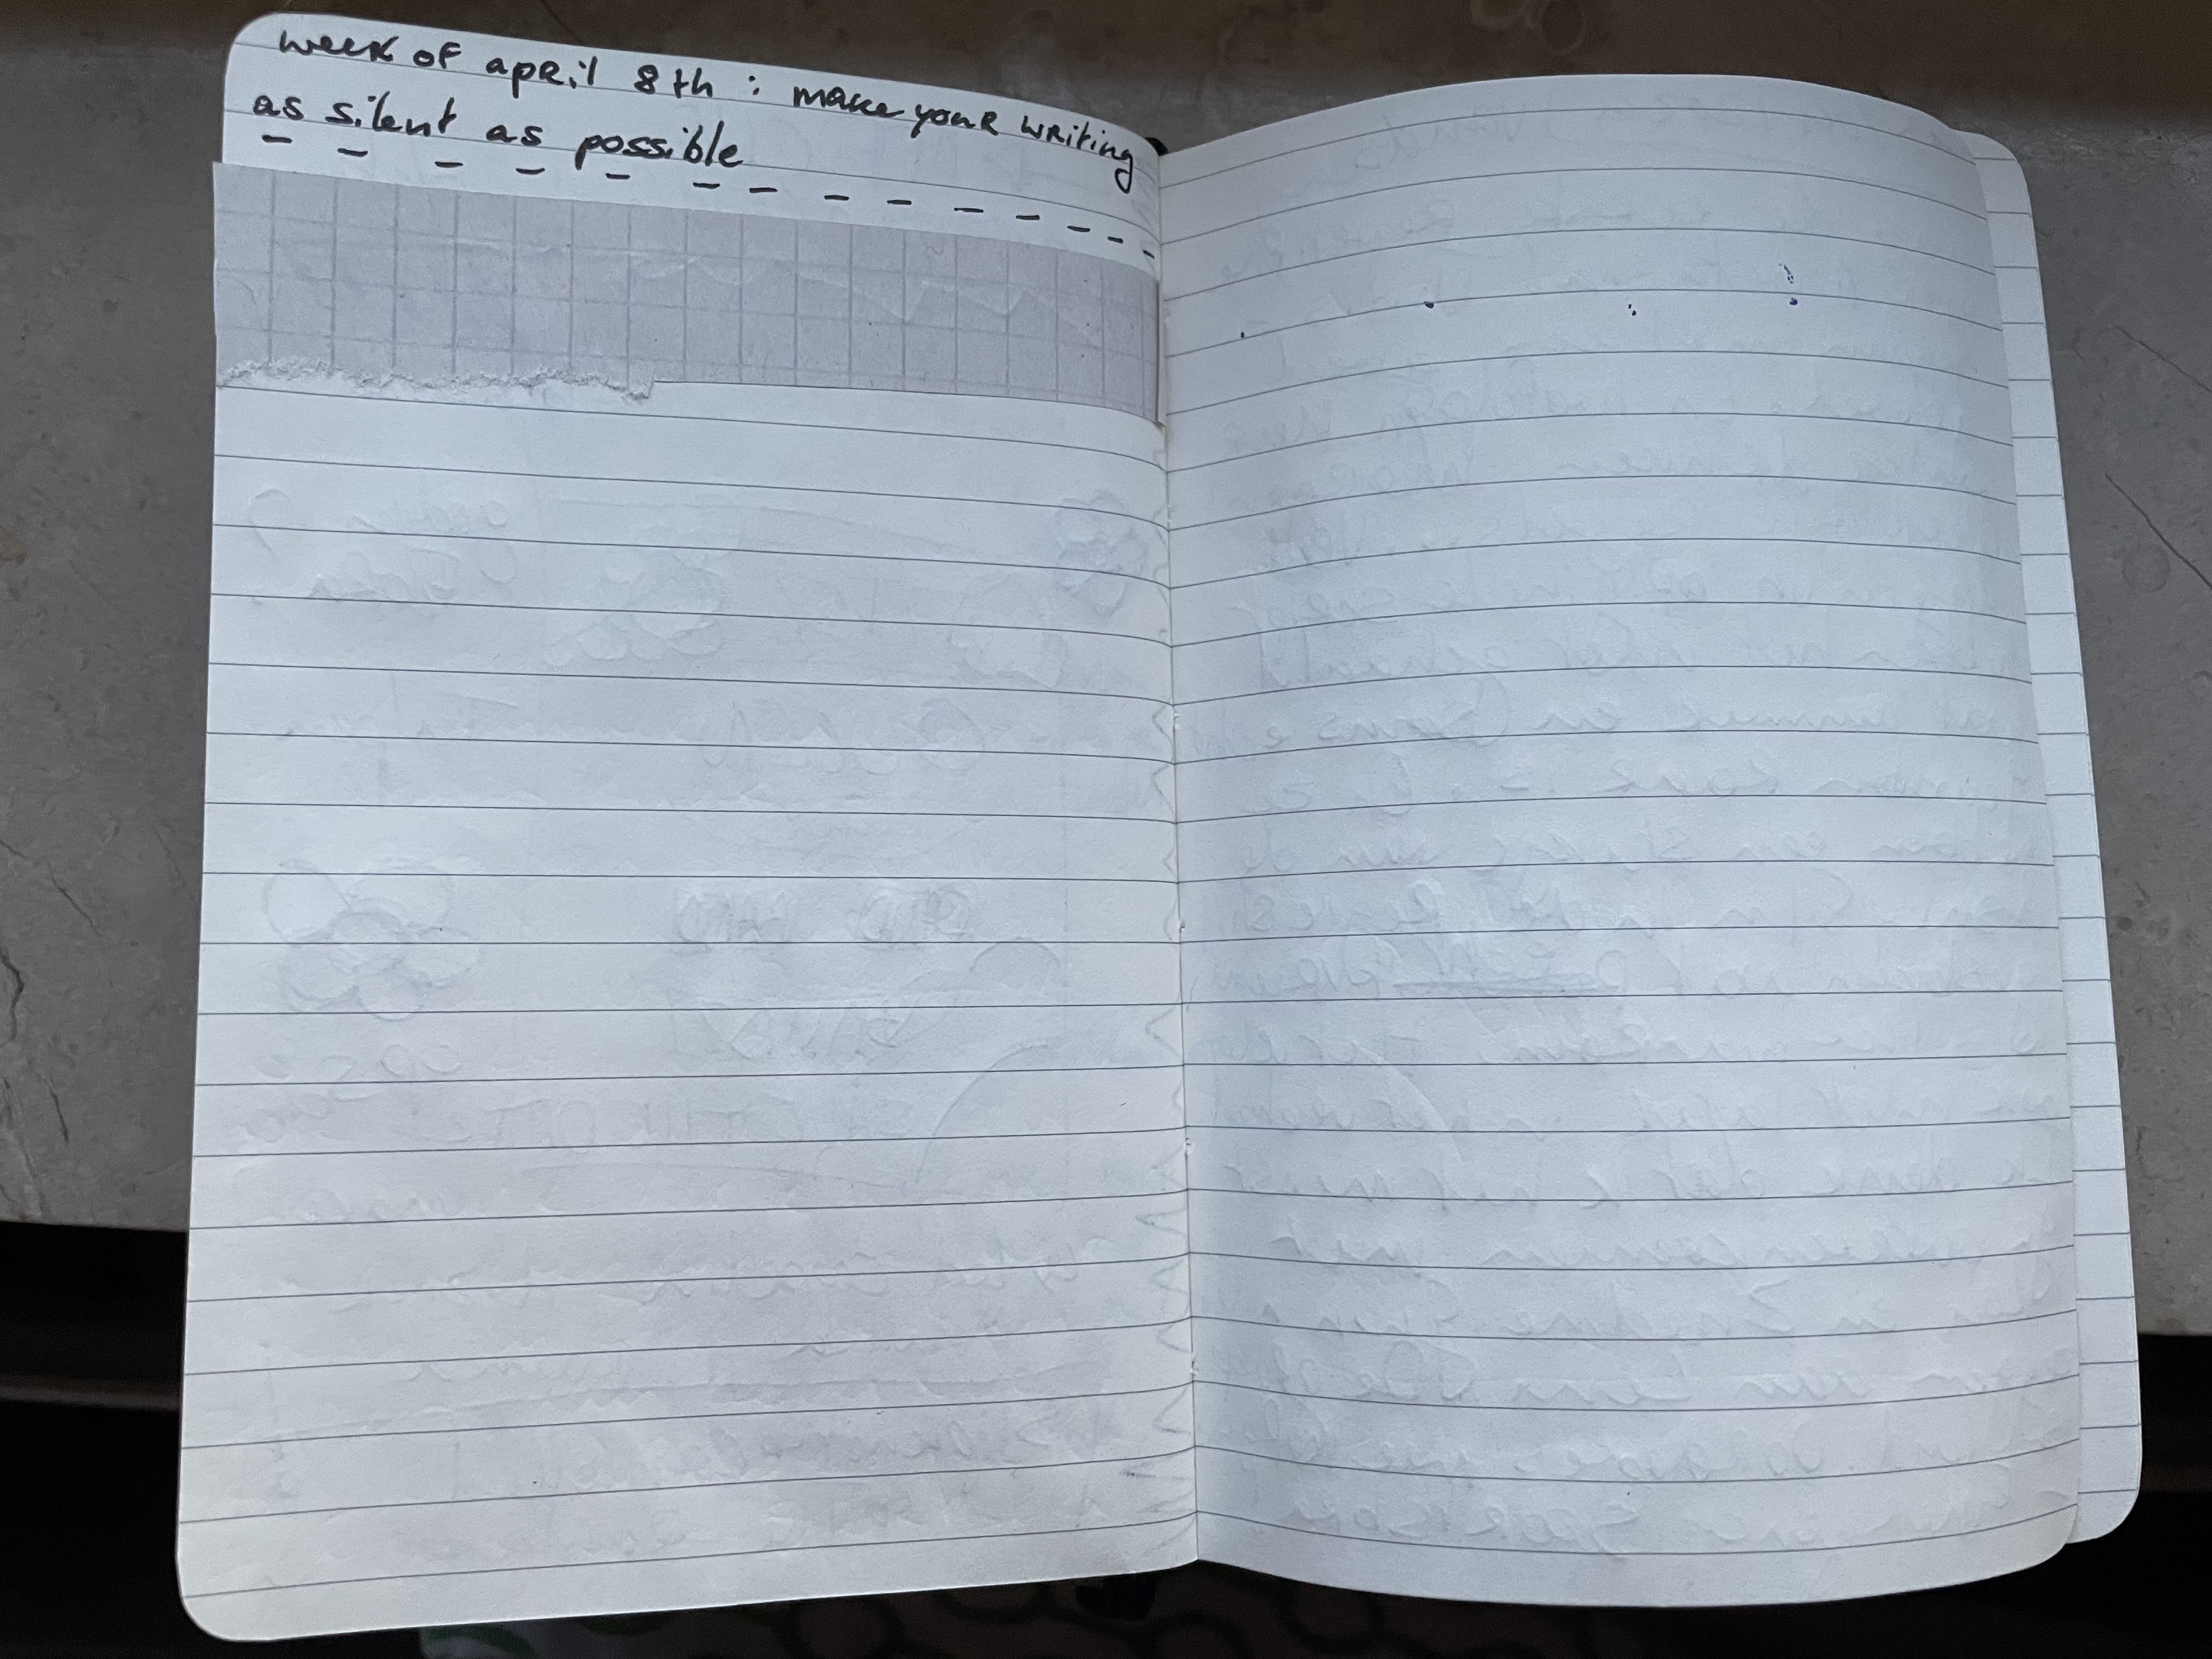 week of april 8th : make your writing
as silent as possible